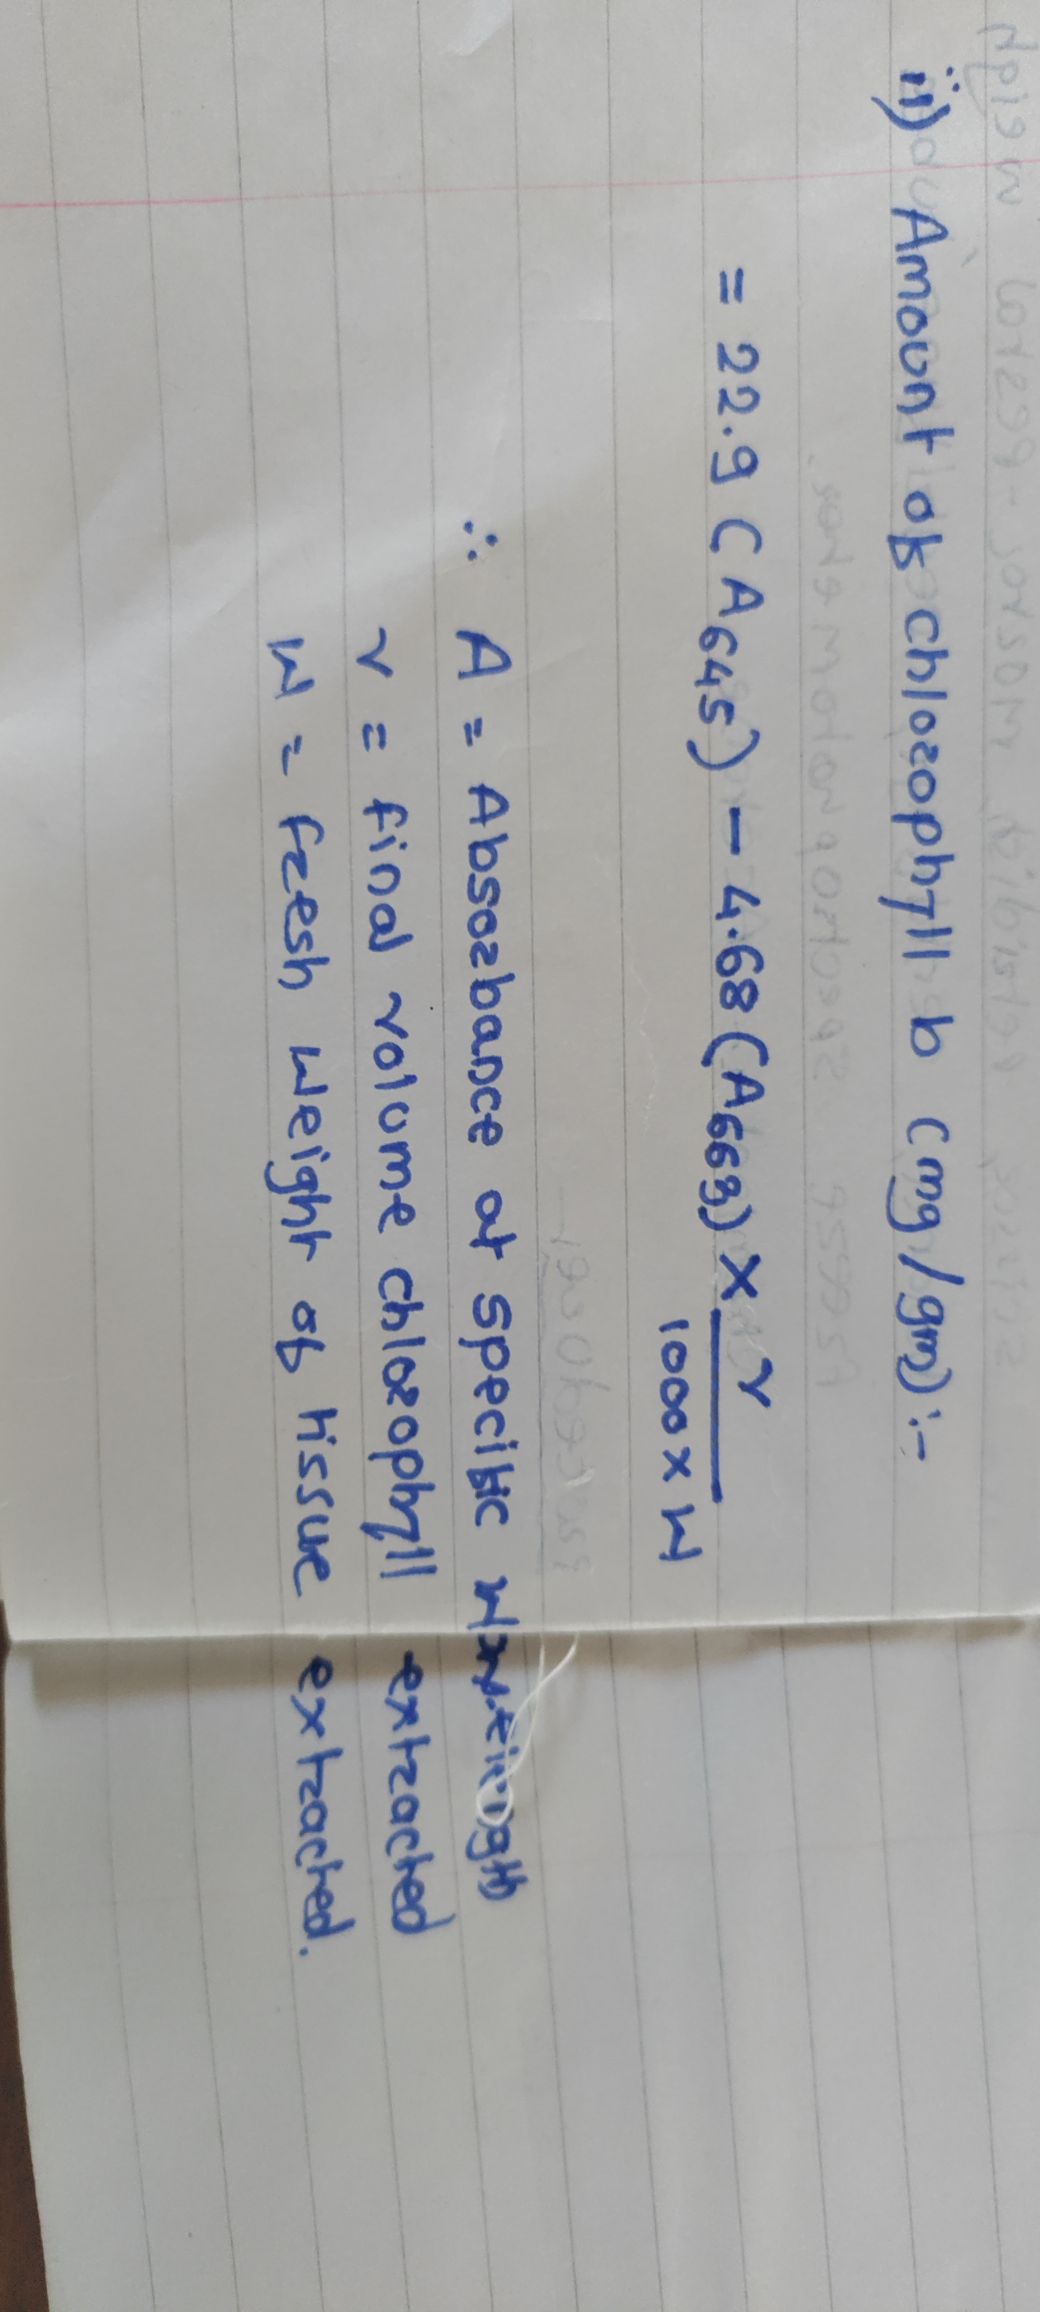 ii) Amount of chlorophyll b (mg/gm) :-
= 22.9 (A645) - 4.68 (A663) × v
1000 × W
∴ A = Absorbance at specific
v = final volume chlorophyll extracted
W = fresh weight of tissue extracted.